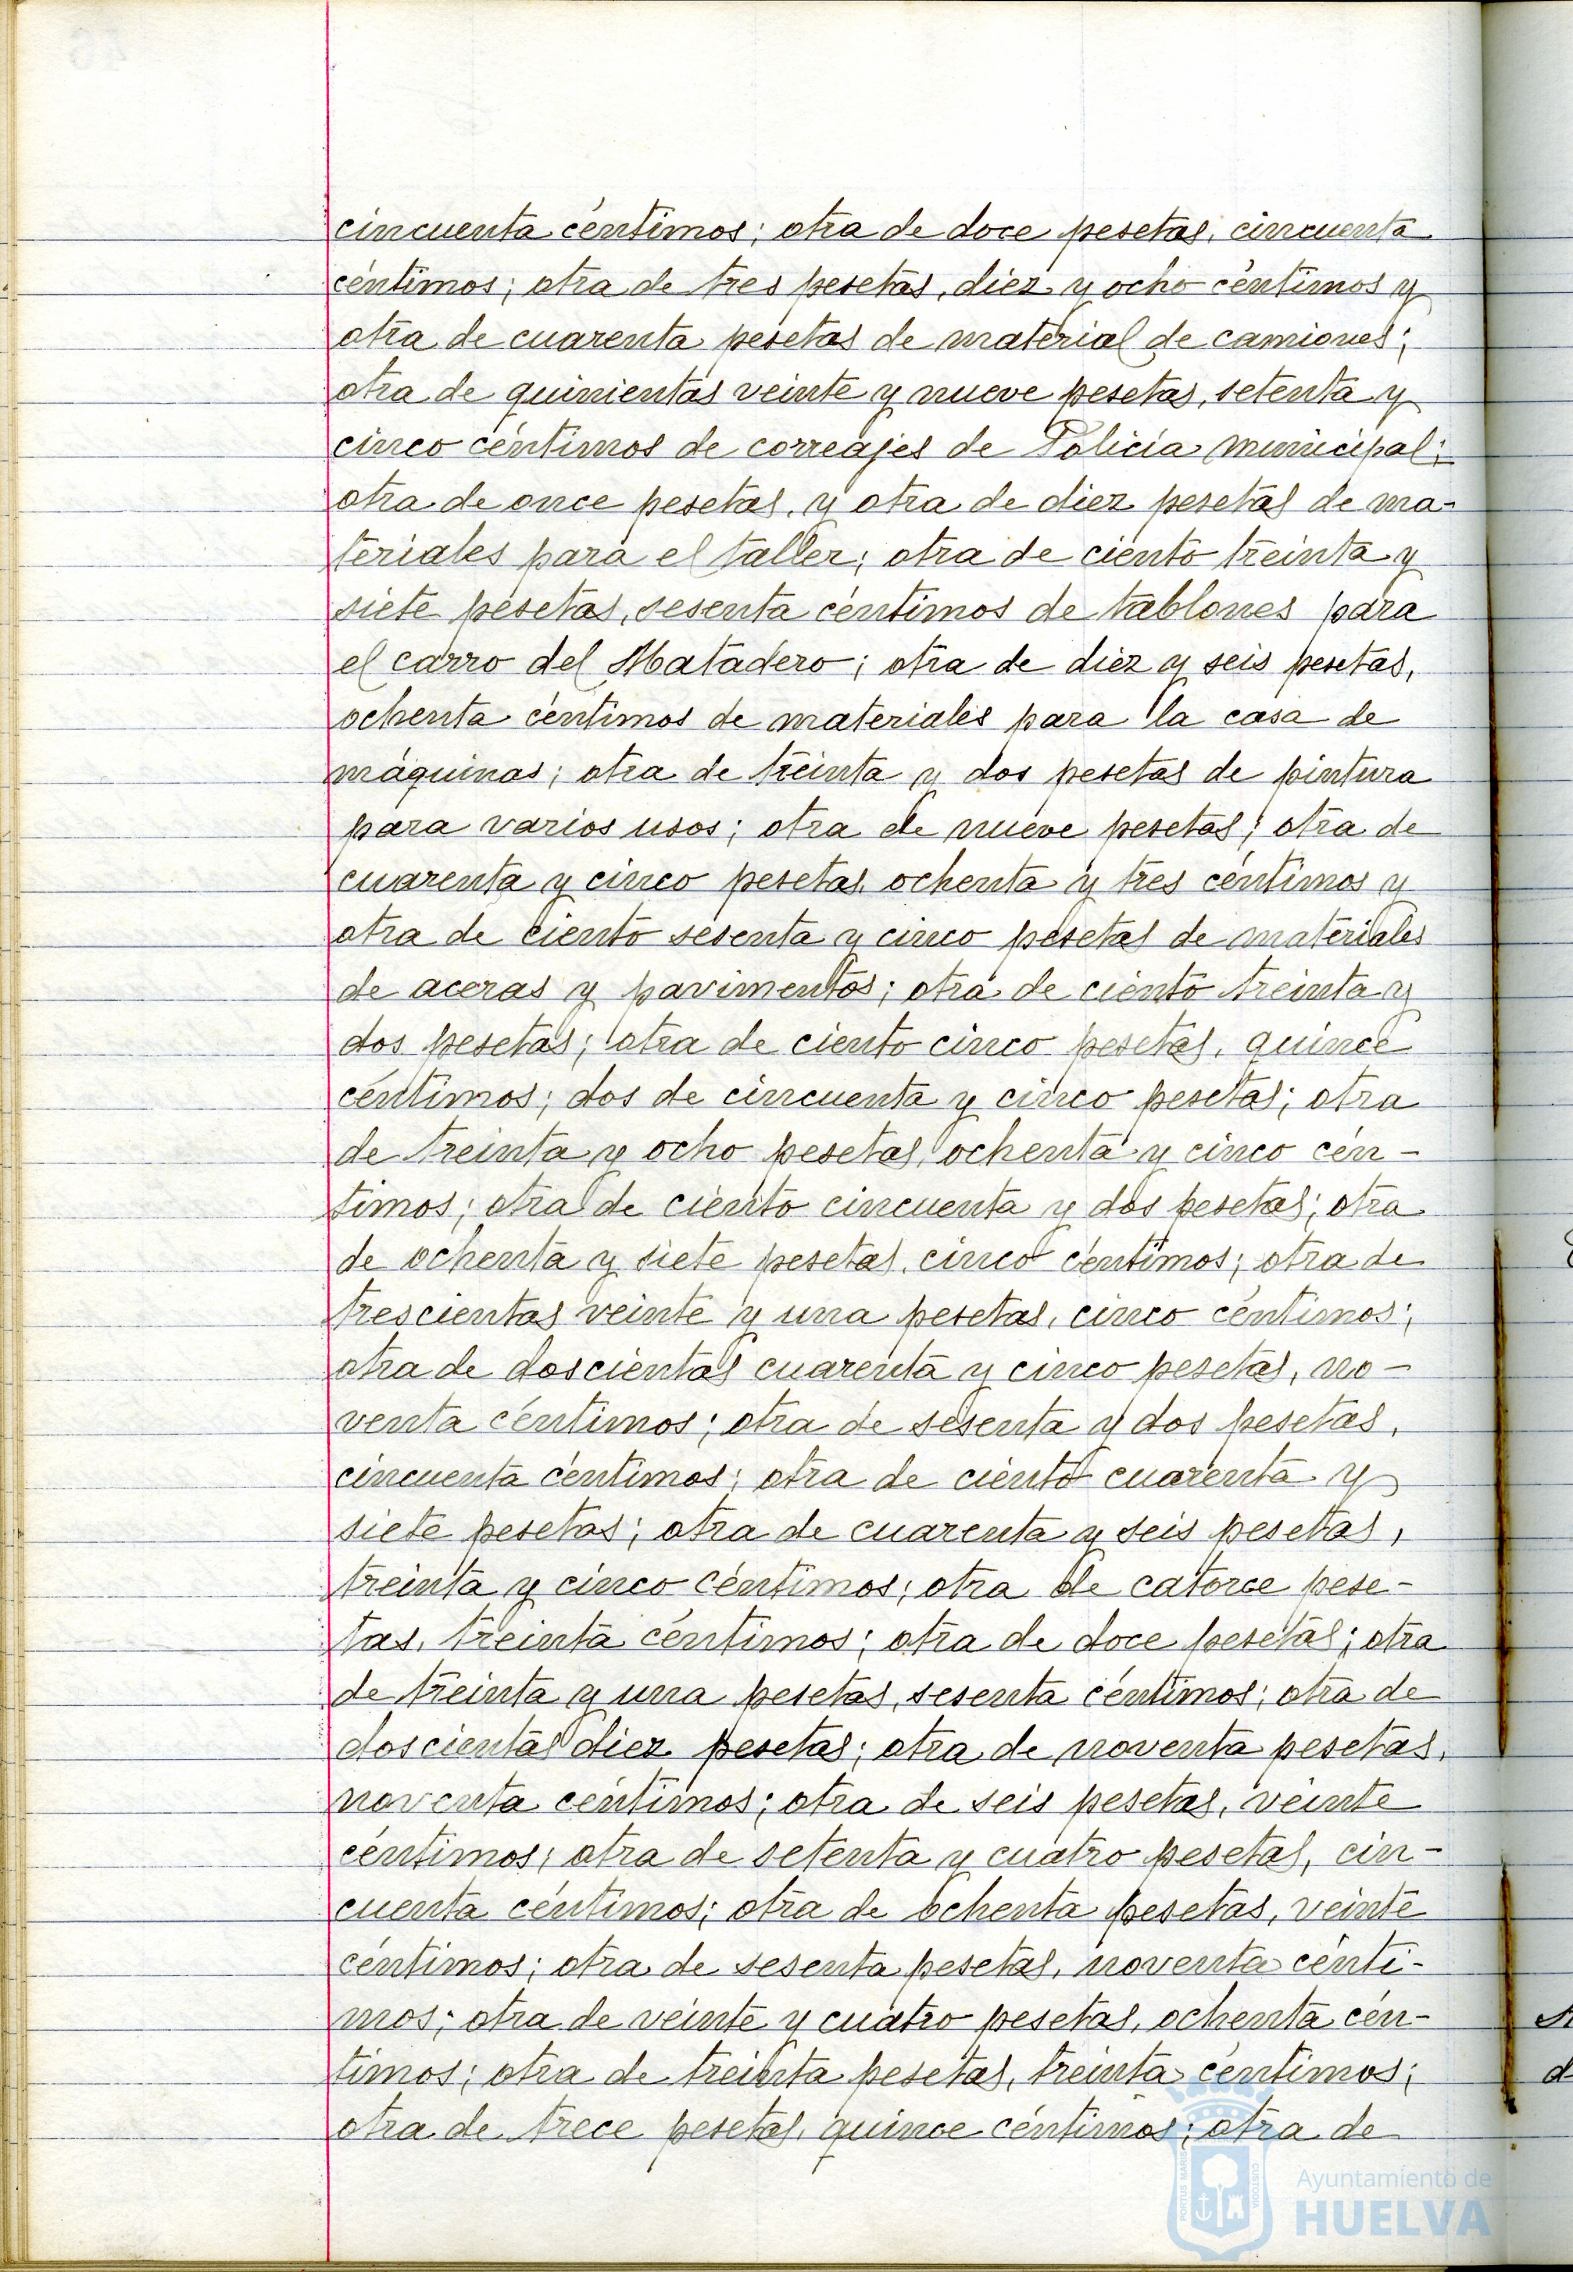 cincuenta céntimos; otra de doce pesetas, cincuenta
céntimos; otra de tres pesetas, diez y ocho céntimos y
otra de cuarenta pesetas de material de camiones;
otra de quinientas veinte y nueve pesetas, setenta y
cinco céntimos de correajes de Policía municipal;
otra de once pesetas, y otra de diez pesetas de ma-
teriales para el taller; otra de ciento treinta y
siete pesetas, sesenta céntimos de tablones para
el carro del Matadero; otra de diez y seis pesetas,
ochenta céntimos de materiales para la casa de
máquinas; otra de treinta y dos pesetas de pintura
para varios usos; otra de nueve pesetas; otra de
cuarenta y cinco pesetas ochenta y tres céntimos y
otra de ciento sesenta y cinco pesetas de materiales
de aceras y pavimentos; otra de ciento treinta y
dos pesetas; otra de ciento cinco pesetas, quince
céntimos; dos de cincuenta y cinco pesetas; otra
de treinta y ocho pesetas, ochenta y cinco cén-
timos; otra de ciento cincuenta y dos pesetas; otra
de ochenta y siete pesetas, cinco céntimos; otra de
trescientas veinte y una pesetas, cinco céntimos;
otra de doscientas cuarenta y cinco pesetas, no-
venta céntimos; otra de sesenta y dos pesetas,
cincuenta céntimos; otra de ciento cuarenta y
siete pesetas; otra de cuarenta y seis pesetas,
treinta y cinco céntimos; otra de catorce pese-
tas, treinta céntimos; otra de doce pesetas; otra
de treinta y una pesetas, sesenta céntimos; otra de
doscientas diez pesetas; otra de noventa pesetas,
noventa céntimos; otra de seis pesetas, veinte
céntimos; otra de setenta y cuatro pesetas, cin-
cuenta céntimos; otra de ochenta pesetas, veinte
céntimos; otra de sesenta pesetas, noventa cénti-
mos; otra de veinte y cuatro pesetas, ochenta cén-
timos; otra de treinta pesetas, treinta céntimos;
otra de trece pesetas, quince céntimos; otra de
PORTUS MARIS CUSTODIA
Ayuntamiento de
HUELVA